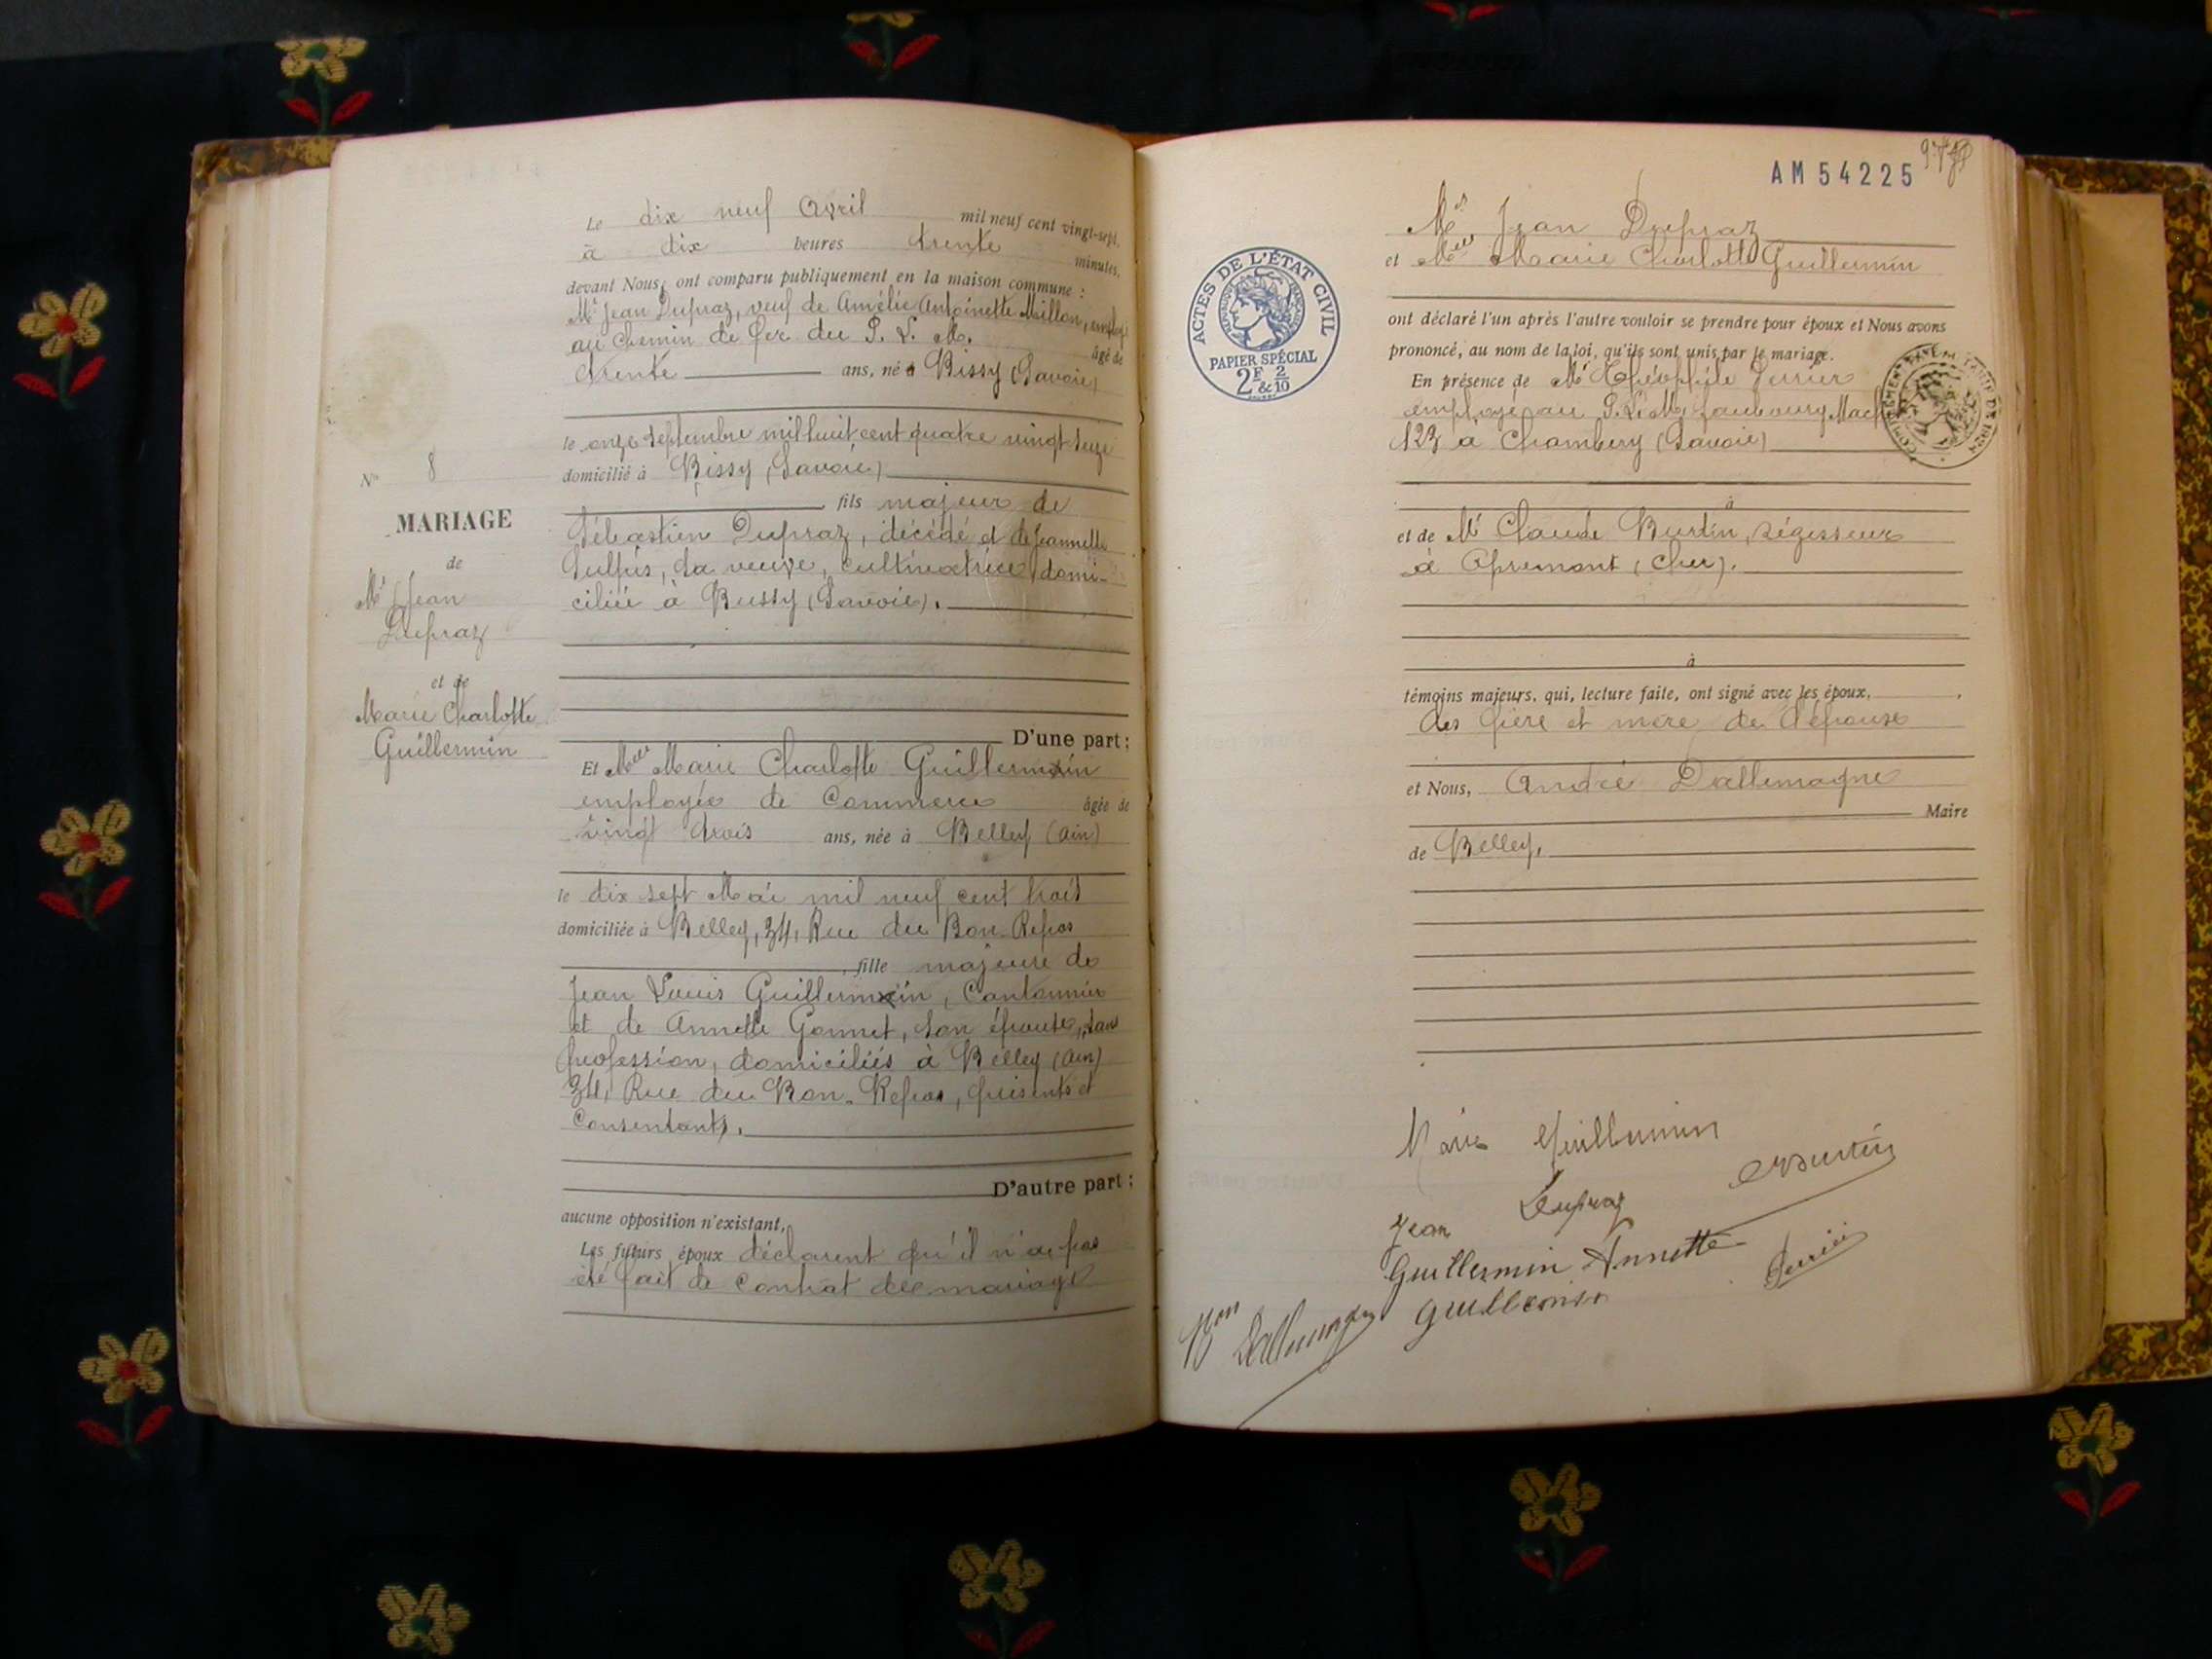 Le dix neuf Avril mil neuf cent vingt-sept.
à dix heures trente minutes.
devant Nous, ont comparu publiquement en la maison commune :
Mr Jean Dupraz, veuf de Amélie Antoinette Millon, employé
au Chemin de fer du P. L. M. âgé de
trente ans, né à Bissy (Savoie)
le onze septembre mil huit cent quatre vingt seize
domicilié à Bissy (Savoie)
fils majeur de
Sébastien Dupraz, décédé et de Jeannette
sa veuve, cultivatrice, domi-
ciliée à Bissy (Savoie).
No 8
MARIAGE
de
Mr Jean
Dupraz
et de
Marie Charlotte
Guillermin
D'une part :
Et Melle Marie Charlotte Guillermin
employée de Commerce âgée de
vingt trois ans, née à Belley (Ain)
le dix sept Mai mil neuf cent trois
domiciliée à Belley, 34, Rue du Bon Repos
fille majeure de
Jean Louis Guillermin, Cantonnier
et de Annette Gonnet, son épouse, sans
profession, domiciliés à Belley (Ain)
34, Rue du Bon-Repos, présents et
Consentants.
D'autre part :
aucune opposition n'existant,
Les futurs époux déclarent qu'il n'a pas
été fait de Contrat de mariage
AM 54225
Mr Jean Dupraz
et Melle Marie Charlotte Guillermin
ACTES DE L'ÉTAT CIVIL
RÉPUBLIQUE FRANÇAISE
PAPIER SPÉCIAL
2F & 2/10
ont déclaré l'un après l'autre vouloir se prendre pour époux et Nous avons
prononcé, au nom de la loi, qu'ils sont unis par le mariage.
En présence de Mr Théophile Perrier
employé au P. L. M. faubourg
123 à Chambéry (Savoie)
à
et de Mr Claude Burdin, régisseur
à Apremont (Cher).
à
témoins majeurs, qui, lecture faite, ont signé avec les époux,
les père et mère de l'épouse
et Nous, André Dallemagne
Maire
de Belley.
Marie Guillermin
Burdin
Jean Dupraz
Guillermin Annette
Perrier
Guillermin
Dallemagne